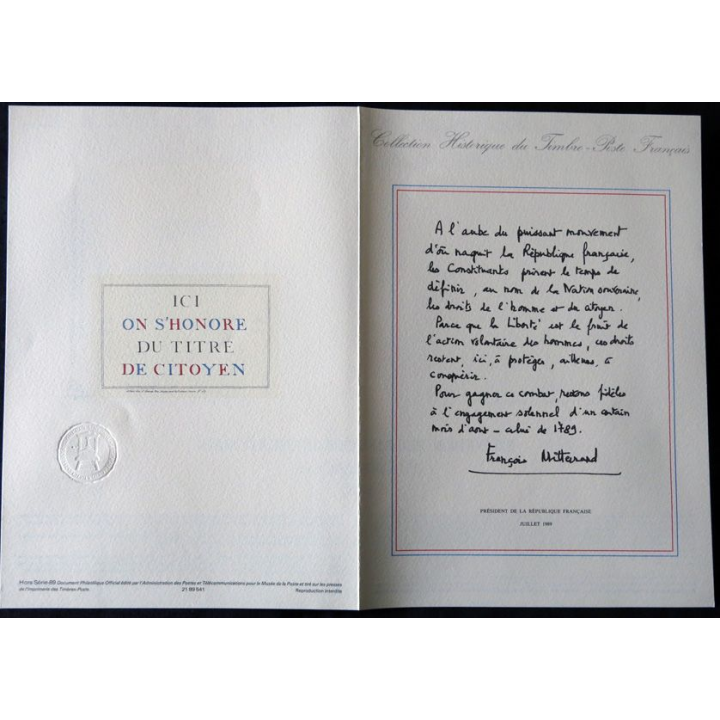 ICI
ON S'HONORE
DU TITRE
DE CITOYEN
Hors Série-89 Document Philatélique Officiel édité par l'Administration des Postes et Télécommunications pour le Musée de la Poste et tiré sur les presses
de l'Imprimerie des Timbres-Poste.
21 89 541
Reproduction interdite
Collection Historique du Timbre-Poste Français
A l'aube du puissant mouvement
d'où naquit la République française,
les Constituants prirent le temps de
définir, au nom de la Nation souveraine,
les droits de l'homme et du citoyen.
Parce que la liberté est le fruit de
l'action volontaire des hommes, ces droits
restent, ici, à protéger, ailleurs, à
conquérir.
Pour gagner ce combat, restons fidèles
à l'engagement solennel d'un certain
mois d'août - celui de 1789.
François Mitterrand
PRÉSIDENT DE LA RÉPUBLIQUE FRANÇAISE
JUILLET 1989